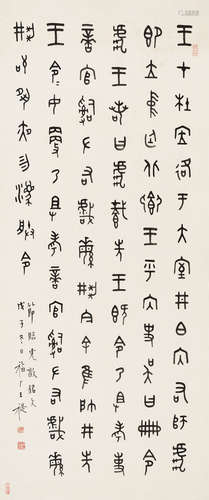 王才杜㡴各于大室井白内右師虎
即立中廷北鄉王乎内史吳曰冊令
虎王若曰虎䡴先王既令乃祖考事
啻官𤔲ナ右戲緐荆今隹帥井先
王令令女更乃祖考啻官𤔲ナ右戲緐
荆敬夙夜勿灋朕令
節臨虎敦銘文
戊子冬日福厂王禔